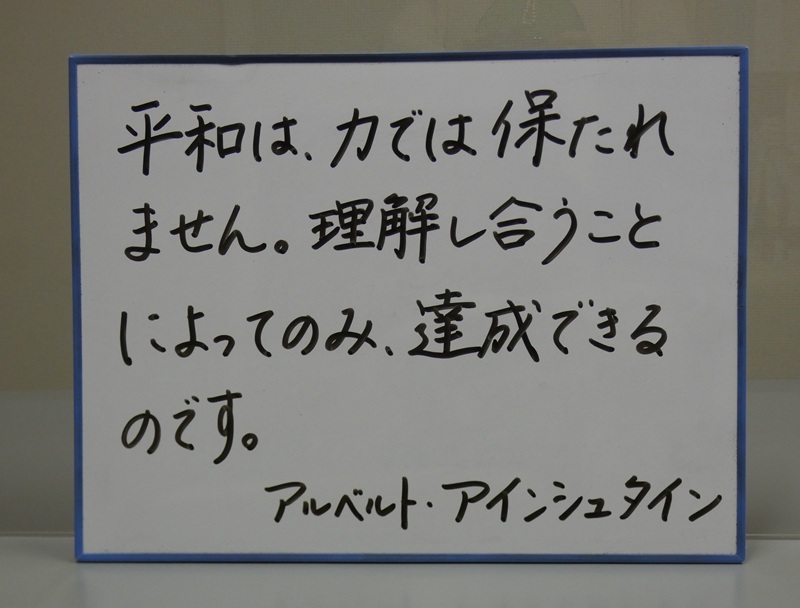 平和は、力では保たれ
ません。理解し合うこと
によってのみ、達成できる
のです。
アルベルト・アインシュタイン